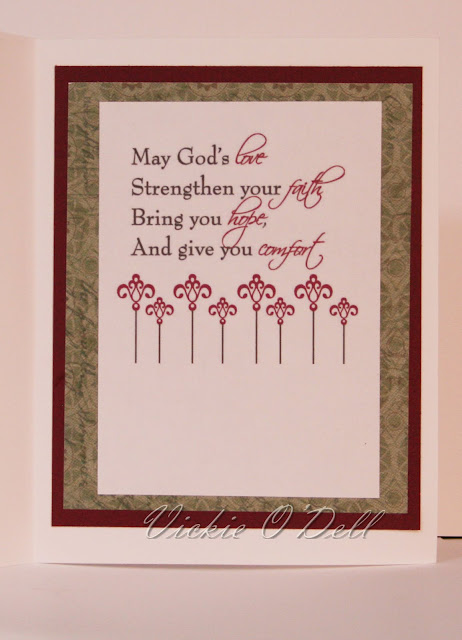 May God's love
Strengthen your faith,
Bring you hope,
And give you comfort
Vickie O'Dell